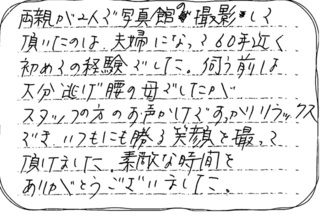 両親が2人で写真館の撮影して
頂いたのは、夫婦になって60年近く
初めての経験でした。伺う前は
大分逃げ腰の母でしたが
スタッフの方のお声かけですっかりリラックス
でき、いつもにも勝る笑顔を撮って
頂けました。素敵な時間を
ありがとうございました。